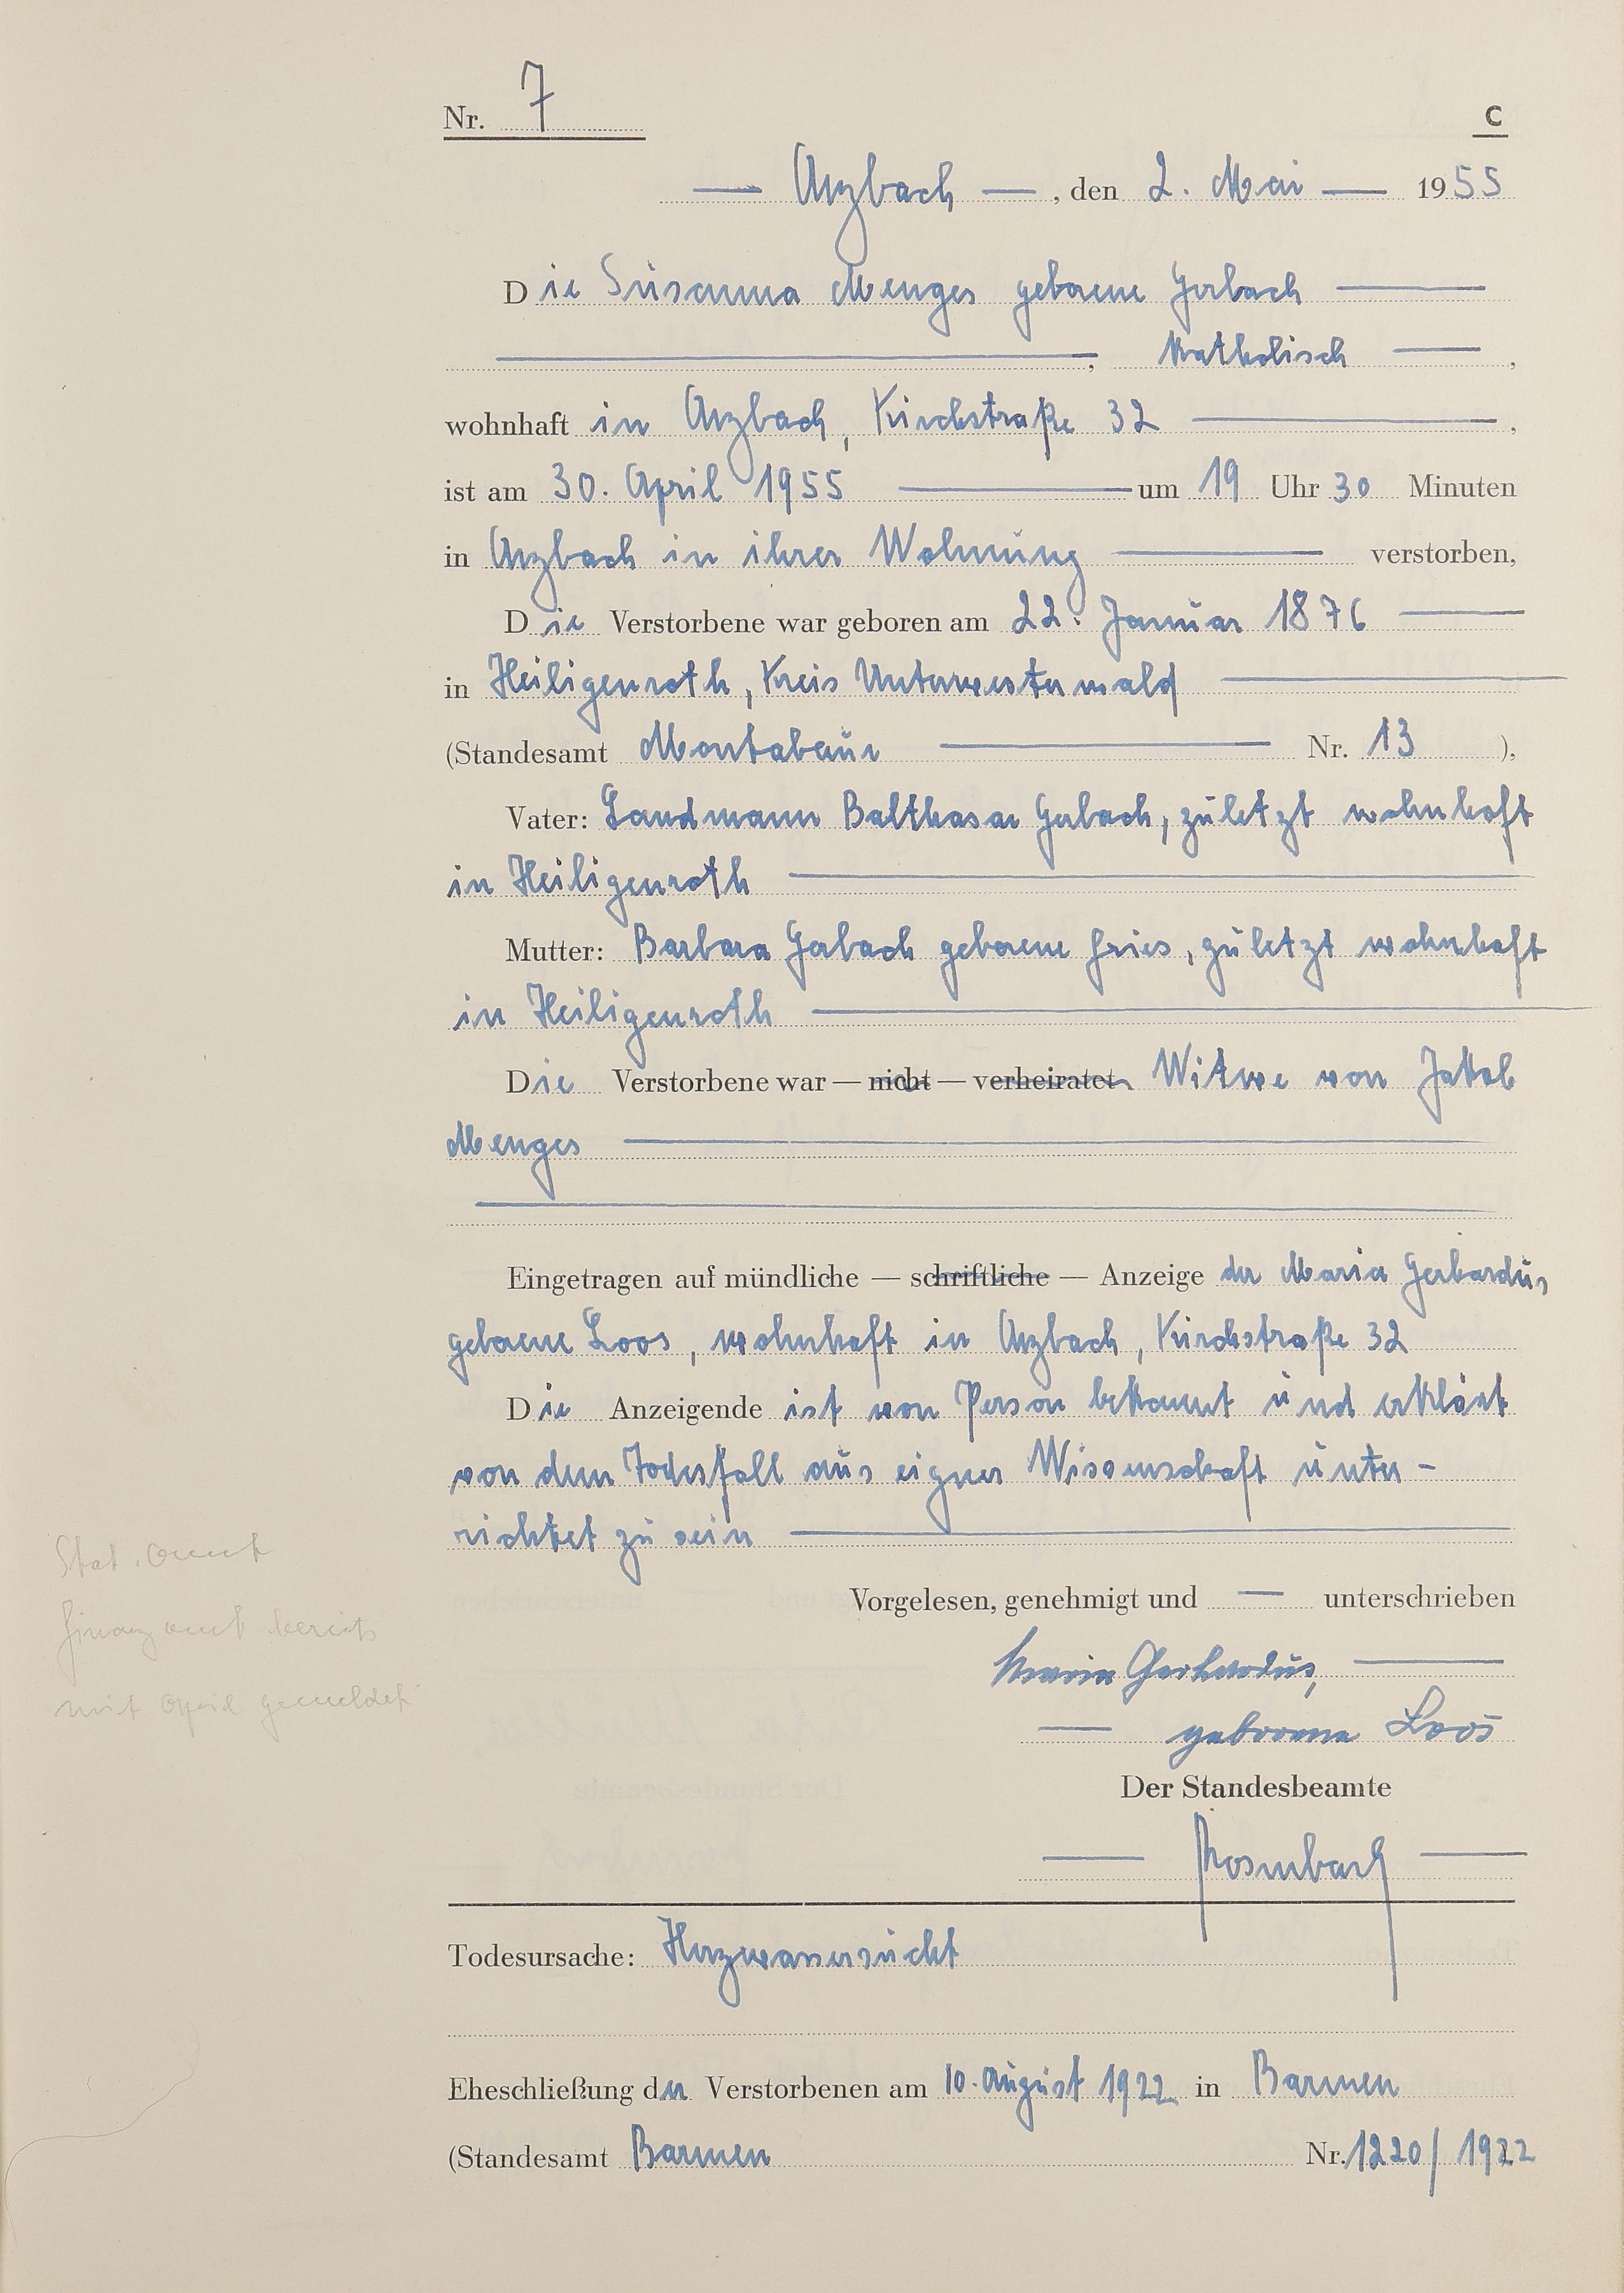 Nr. 7
C
— Arzbach — , den 2. Mai — 1955
Die Susanna Menges geborene Gerbach —
— , katholisch — ,
wohnhaft in Arzbach, Kirchstraße 32 — ,
ist am 30. April 1955 — um 19 Uhr 30 Minuten
in Arzbach in ihrer Wohnung — verstorben,
Die Verstorbene war geboren am 22. Januar 1876 —
in Heiligenroth, Kreis Unterwesterwald —
(Standesamt Montabaur — Nr. 13 ),
Vater: Landmann Balthasar Gerbach, zuletzt wohnhaft
in Heiligenroth —
Mutter: Barbara Gerbach geborene Fries, zuletzt wohnhaft
in Heiligenroth —
Die Verstorbene war — nicht — verheiratet Witwe von Jakob
Menges —
Eingetragen auf mündliche — schriftliche — Anzeige der Maria Gerhardus
geborene Loos, wohnhaft in Arzbach, Kirchstraße 32
Die Anzeigende ist von Person bekannt und erklärt
von dem Todesfall aus eigner Wissenschaft unter-
richtet zu sein —
Stat. Amt
Finanzamt bereits
mit April gemeldet
Vorgelesen, genehmigt und — unterschrieben
Maria Gerhardus, —
— geborene Loos
Der Standesbeamte
—  —
Todesursache: Herzwassersucht
Eheschließung der Verstorbenen am 10. August 1922 in Barmen
(Standesamt Barmen Nr. 1220/1922